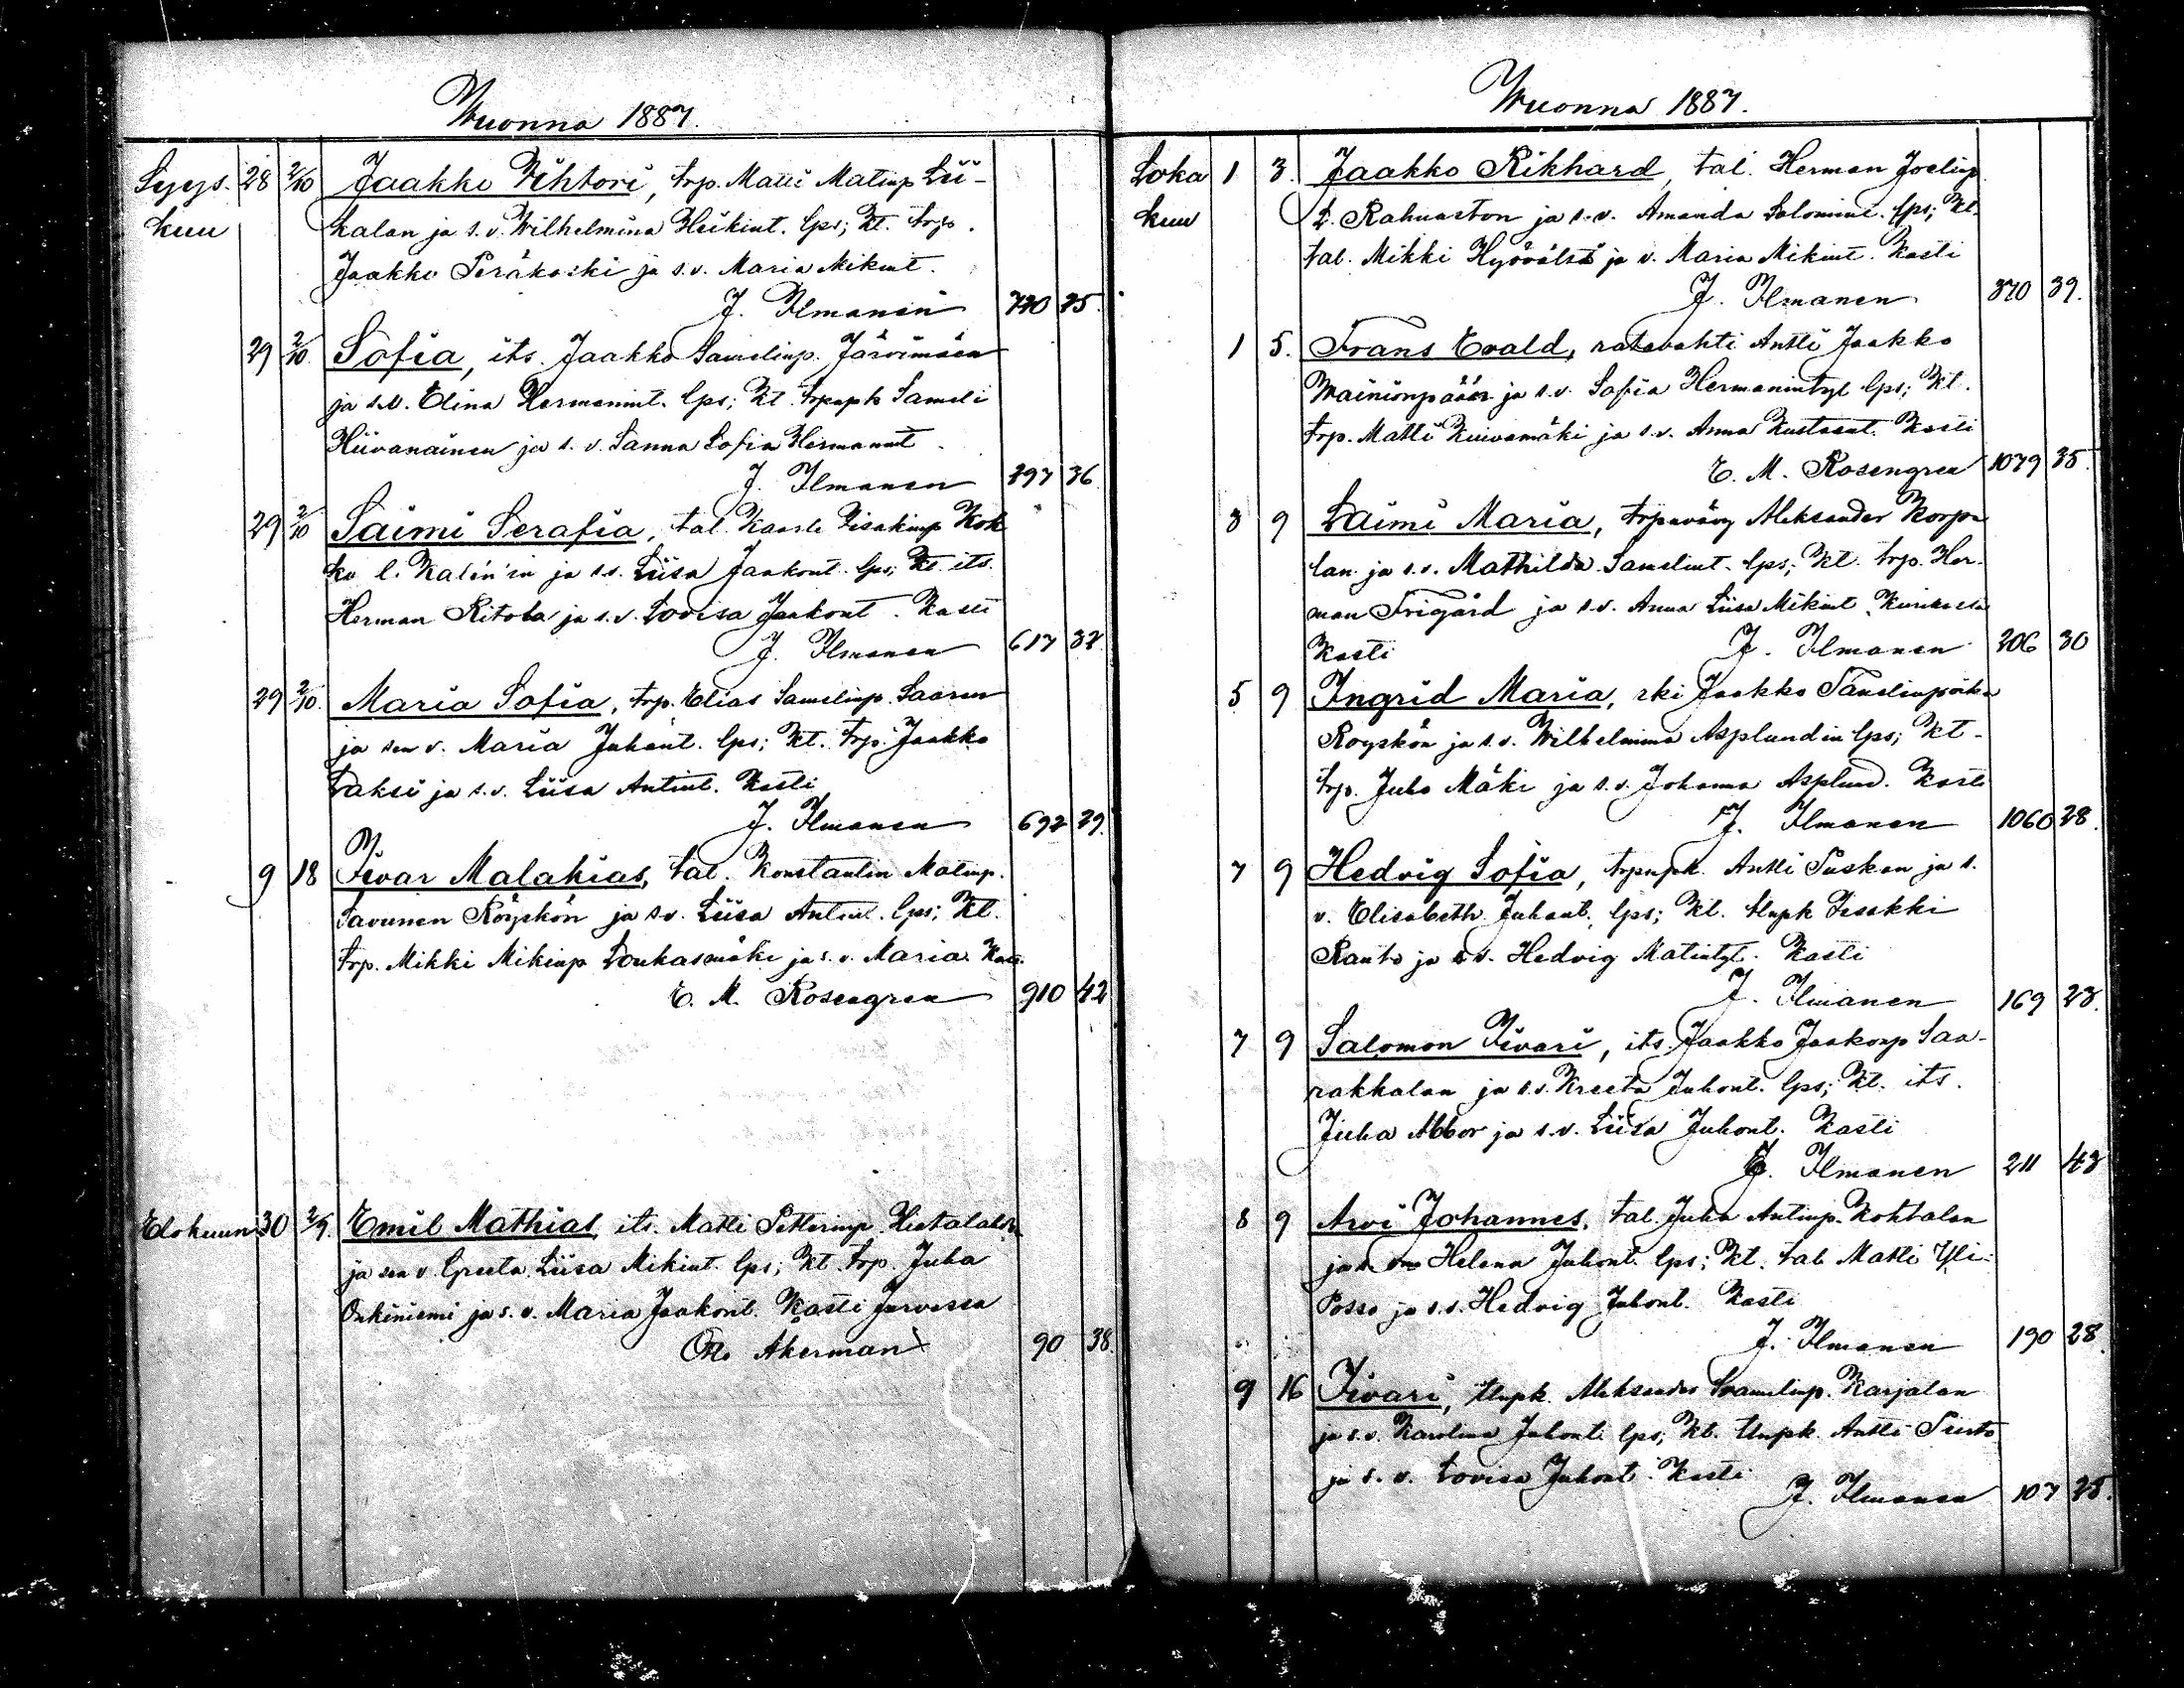 Wuonna 1887.
Syys- 28 2/10 Jaakko Wihtori, trp. Matti Matinp Lii-
kuu kalan ja s. v. Wilhelmina Heikint. lps; Kt. trp.
Jaakko Peräkoski ja s.v. Maria Mikint.
J. Ilmanen 25.
29 2/10. Sofia, its. Jaakko Samelinp. Järvimäen
ja s.v. Elina Hermanint. lps; Kt. trpnpk Sameli
Hiivanainen ja s. v. Sanna Sofia Hermanint.
J. Ilmanen 297 36.
29 2/10 Saimi Serafia, tal. Kaarle Iisakinp Kok
ko l. Kalén'in ja s.v. Liisa Jaakont. lps; Kt. its.
Herman Ritola ja s.v. Lovisa Jaakont. Kasti
J. Ilmanen 617 32.
29 2/10. Maria Sofia, trp. Elias Samelinp. Saaren
ja sen v. Maria Juhont. lps; Kt. trp. Jaakko
Laksi ja s.v. Liisa Antint. Kasti
J. Ilmanen 692 29.
9 18 Iivar Malakias, tal. Konstantin Matinp.
Savunen Röyskön ja s.v. Liisa Antint. lps; Kt.
trp. Mikki Mikinp Loukasmäki ja s. v. Maria Kas.
E. M. Rosengren 910 42
Elokuun 30 2/9. Emil Mathias, its. Matti Petterinp.
ja sen v. Greeta Liisa Mikint. lps; Kt. trp. Juha
Onkiniemi ja s. v. Maria Jaakont. Kasti Jurvassa
Otto Åkerman 90 38.
Wuonna 1887.
Loka 1 3. Jaakko Rikhard, tal. Herman Joelinp.
kuu L. Rahnaston ja s.v. Amanda Salomint. lps; Kt.
tal. Mikki Hyövälti ja v. Maria Mikint. Kasti
J. Ilmanen 370 39.
1 5. Frans Evald, ratavahti Antti Jaakko
Wäinionpään ja s.v. Sofia Hermanintyt lps; Kt.
trp. Matti Kuivamäki ja s.v. Anna Kustaant. Kasti
E. M. Rosengren 1079 35.
3 9 Laimi Maria, trpnvävy Aleksander Korpe
lan ja s.v. Mathilda Samelint. lps; Kt. trp. Her-
man Frigård ja s.v. Anna Liisa Mikint Kurikassa
Kasti J. Ilmanen 206 30
5 9 Ingrid Maria, rki Jaakko Samelinpoika
Royskön ja s.v. Wilhelmina Asplundin lps; Kt.
trp. Juho Mäki ja s.v. Johanna Asplund. Kasti
J. Ilmanen 1060 28.
7 9 Hedvig Sofia, trpnpk. Antti Puskan ja s.
v. Elisabeth Juhont. lps; Kt. tlnpk Iisakki
Ranto ja s. Hedvig Matintyt. Kasti
J. Ilmanen 169 23.
7 9 Salomon Iivari, its. Jaakko Jaakonp Saa-
rakkalan ja s.v. Kreeta Juhont. lps; Kt. its.
Juha Abbor ja s.v. Liisa Juhont. Kasti
J. Ilmanen 211 43
8 9 Arvi Johannes, tal. Juha Antinp. Kohtalan
ja Helena Juhont. lps; Kt. tal. Matti Yli-
Posso ja s.v. Hedvig Juhont. Kasti
J. Ilmanen 190 28.
9 16 Iivari, tlnpk. Aleksander Samelinp. Karjalan
ja s.v. Karolina Juhont. lps; Kt. tlnpk. Antti
ja s. v. Lovisa Juhont. Kasti
J. Ilmanen 107 25.